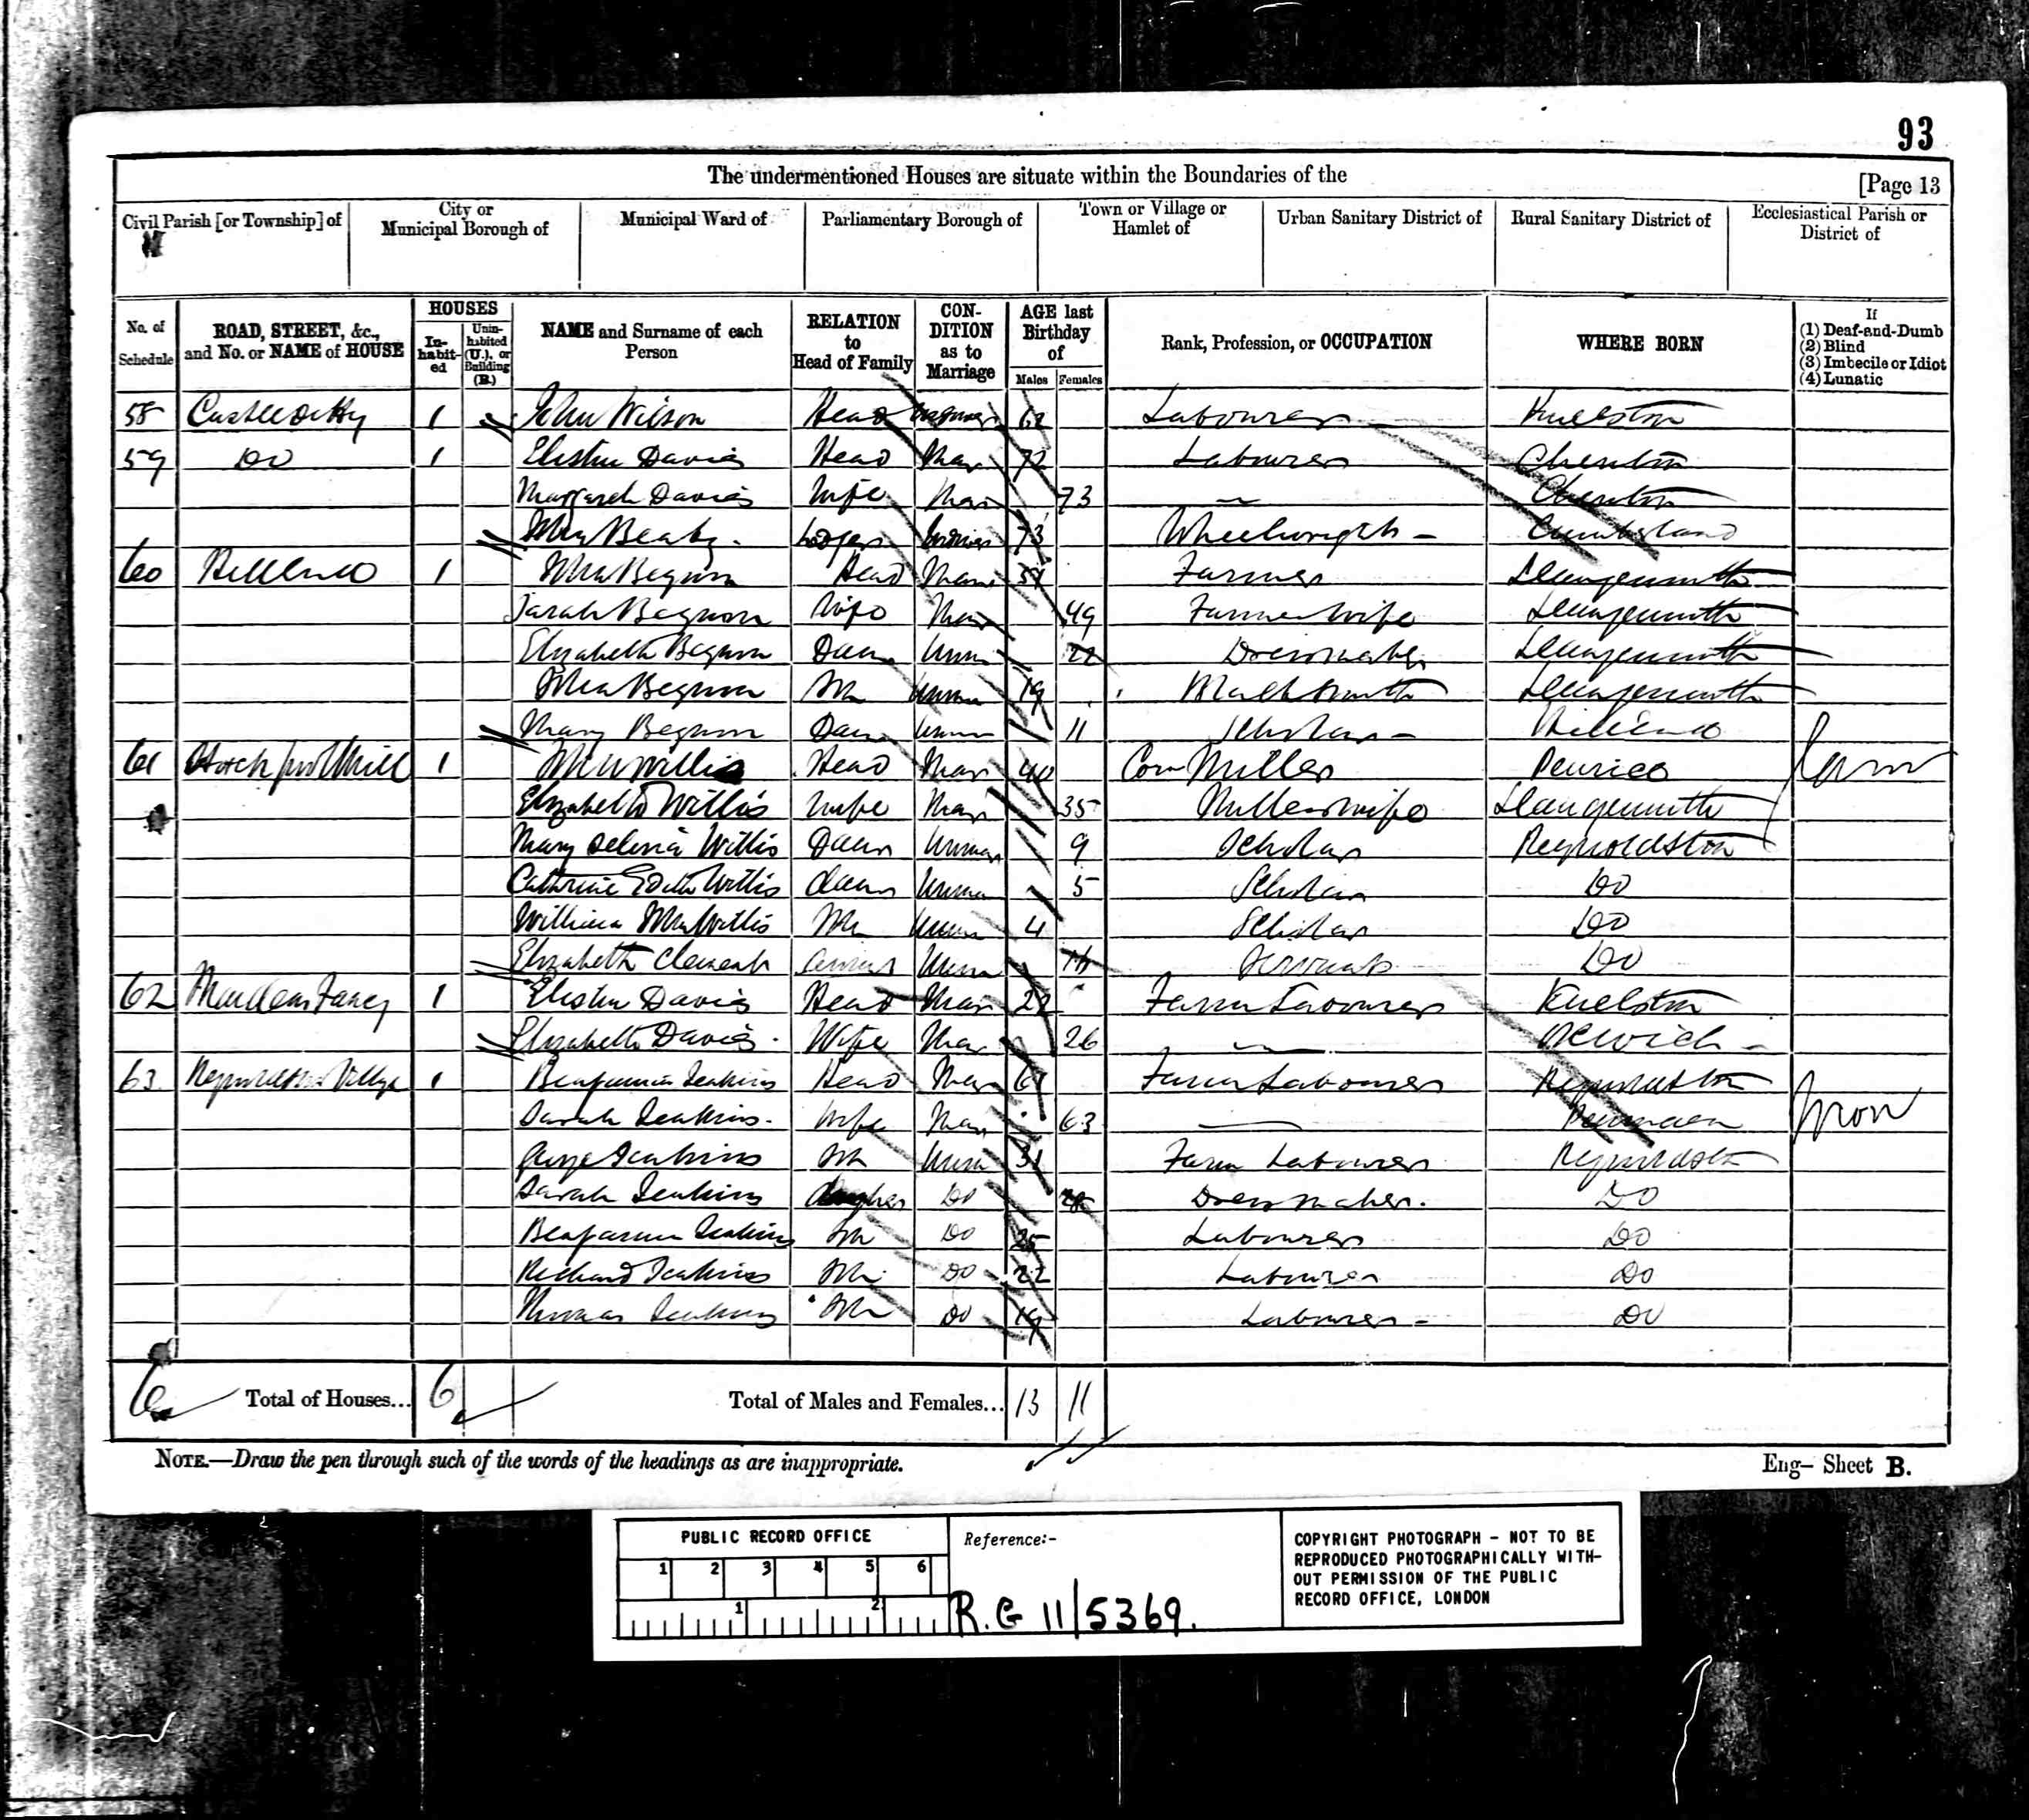 93
The undermentioned Houses are situate within the Boundaries of the
[Page 13
Civil Parish [or Township] of
City or Municipal Borough of
Municipal Ward of
Parliamentary Borough of
Town or Village or Hamlet of
Urban Sanitary District of
Rural Sanitary District of
Ecclesiastical Parish or District of
No. of Schedule
ROAD, STREET, &c., and No. or NAME of HOUSE
HOUSES
In-habit-ed
Unin-habited (U.), or Building (B.)
NAME and Surname of each Person
RELATION to Head of Family
CON-DITION as to Marriage
AGE last Birthday of
Males Females
Rank, Profession, or OCCUPATION
WHERE BORN
If
(1) Deaf-and-Dumb
(2) Blind
(3) Imbecile or Idiot
(4) Lunatic
58 1 John Wilson Head 62 Labourer Knelston
59 Do 1 Davies Head Mar 72 Labourer Cheriton
Margareh Davies Wife Mar 73 Cheriton
John Lodger 73 Wheelwright Cumberland
60 Hillend 1 John Head Mar Farmer Llangennith
Sarah Wife Mar 49 Farmer Wife Llangennith
Elizabeth Daur Unm 22 Dressmaker Llangennith
John Son Unm 19 Blacksmith Llangennith
Mary Daur Unm 11 Scholar Hillend
61 Mill 1 John Willis Head Mar 40 Corn Miller Penrice
Elizabeth Willis Wife Mar 35 Millers wife Llangennith
Mary Selina Willis Daur Unmar 9 Scholar Reynoldston
Catherine Edith Willis daur Unmar 5 Scholar Do
William John Willis Son Unmar 4 Scholar Do
Elizabeth Clement Servant Unm 16 Servant Do
62 1 Davies Head Mar 22 Farm Labourer Knelston
Elizabeth Davies Wife Mar 26
63 Reynoldston Village 1 Benjamin Jenkins Head Mar Farm Labourer Reynoldston
Sarah Jenkins Wife Mar 63
George Jenkins Son Unm 31 Farm Labourer Reynoldston
Sarah Jenkins Do Dress maker Do
Benjamin Jenkins Son Do 25 Labourer Do
Richard Jenkins Son Do 22 Labourer Do
Thomas Jenkins Son Do 19 Labourer Do
6 Total of Houses... 6 Total of Males and Females... 13 11
NOTE.—Draw the pen through such of the words of the headings as are inappropriate.
Eng— Sheet B.
PUBLIC RECORD OFFICE
1 2 3 4 5 6
1 2
Reference:-
R.G 11/5369.
COPYRIGHT PHOTOGRAPH - NOT TO BE
REPRODUCED PHOTOGRAPHICALLY WITH-
OUT PERMISSION OF THE PUBLIC
RECORD OFFICE, LONDON